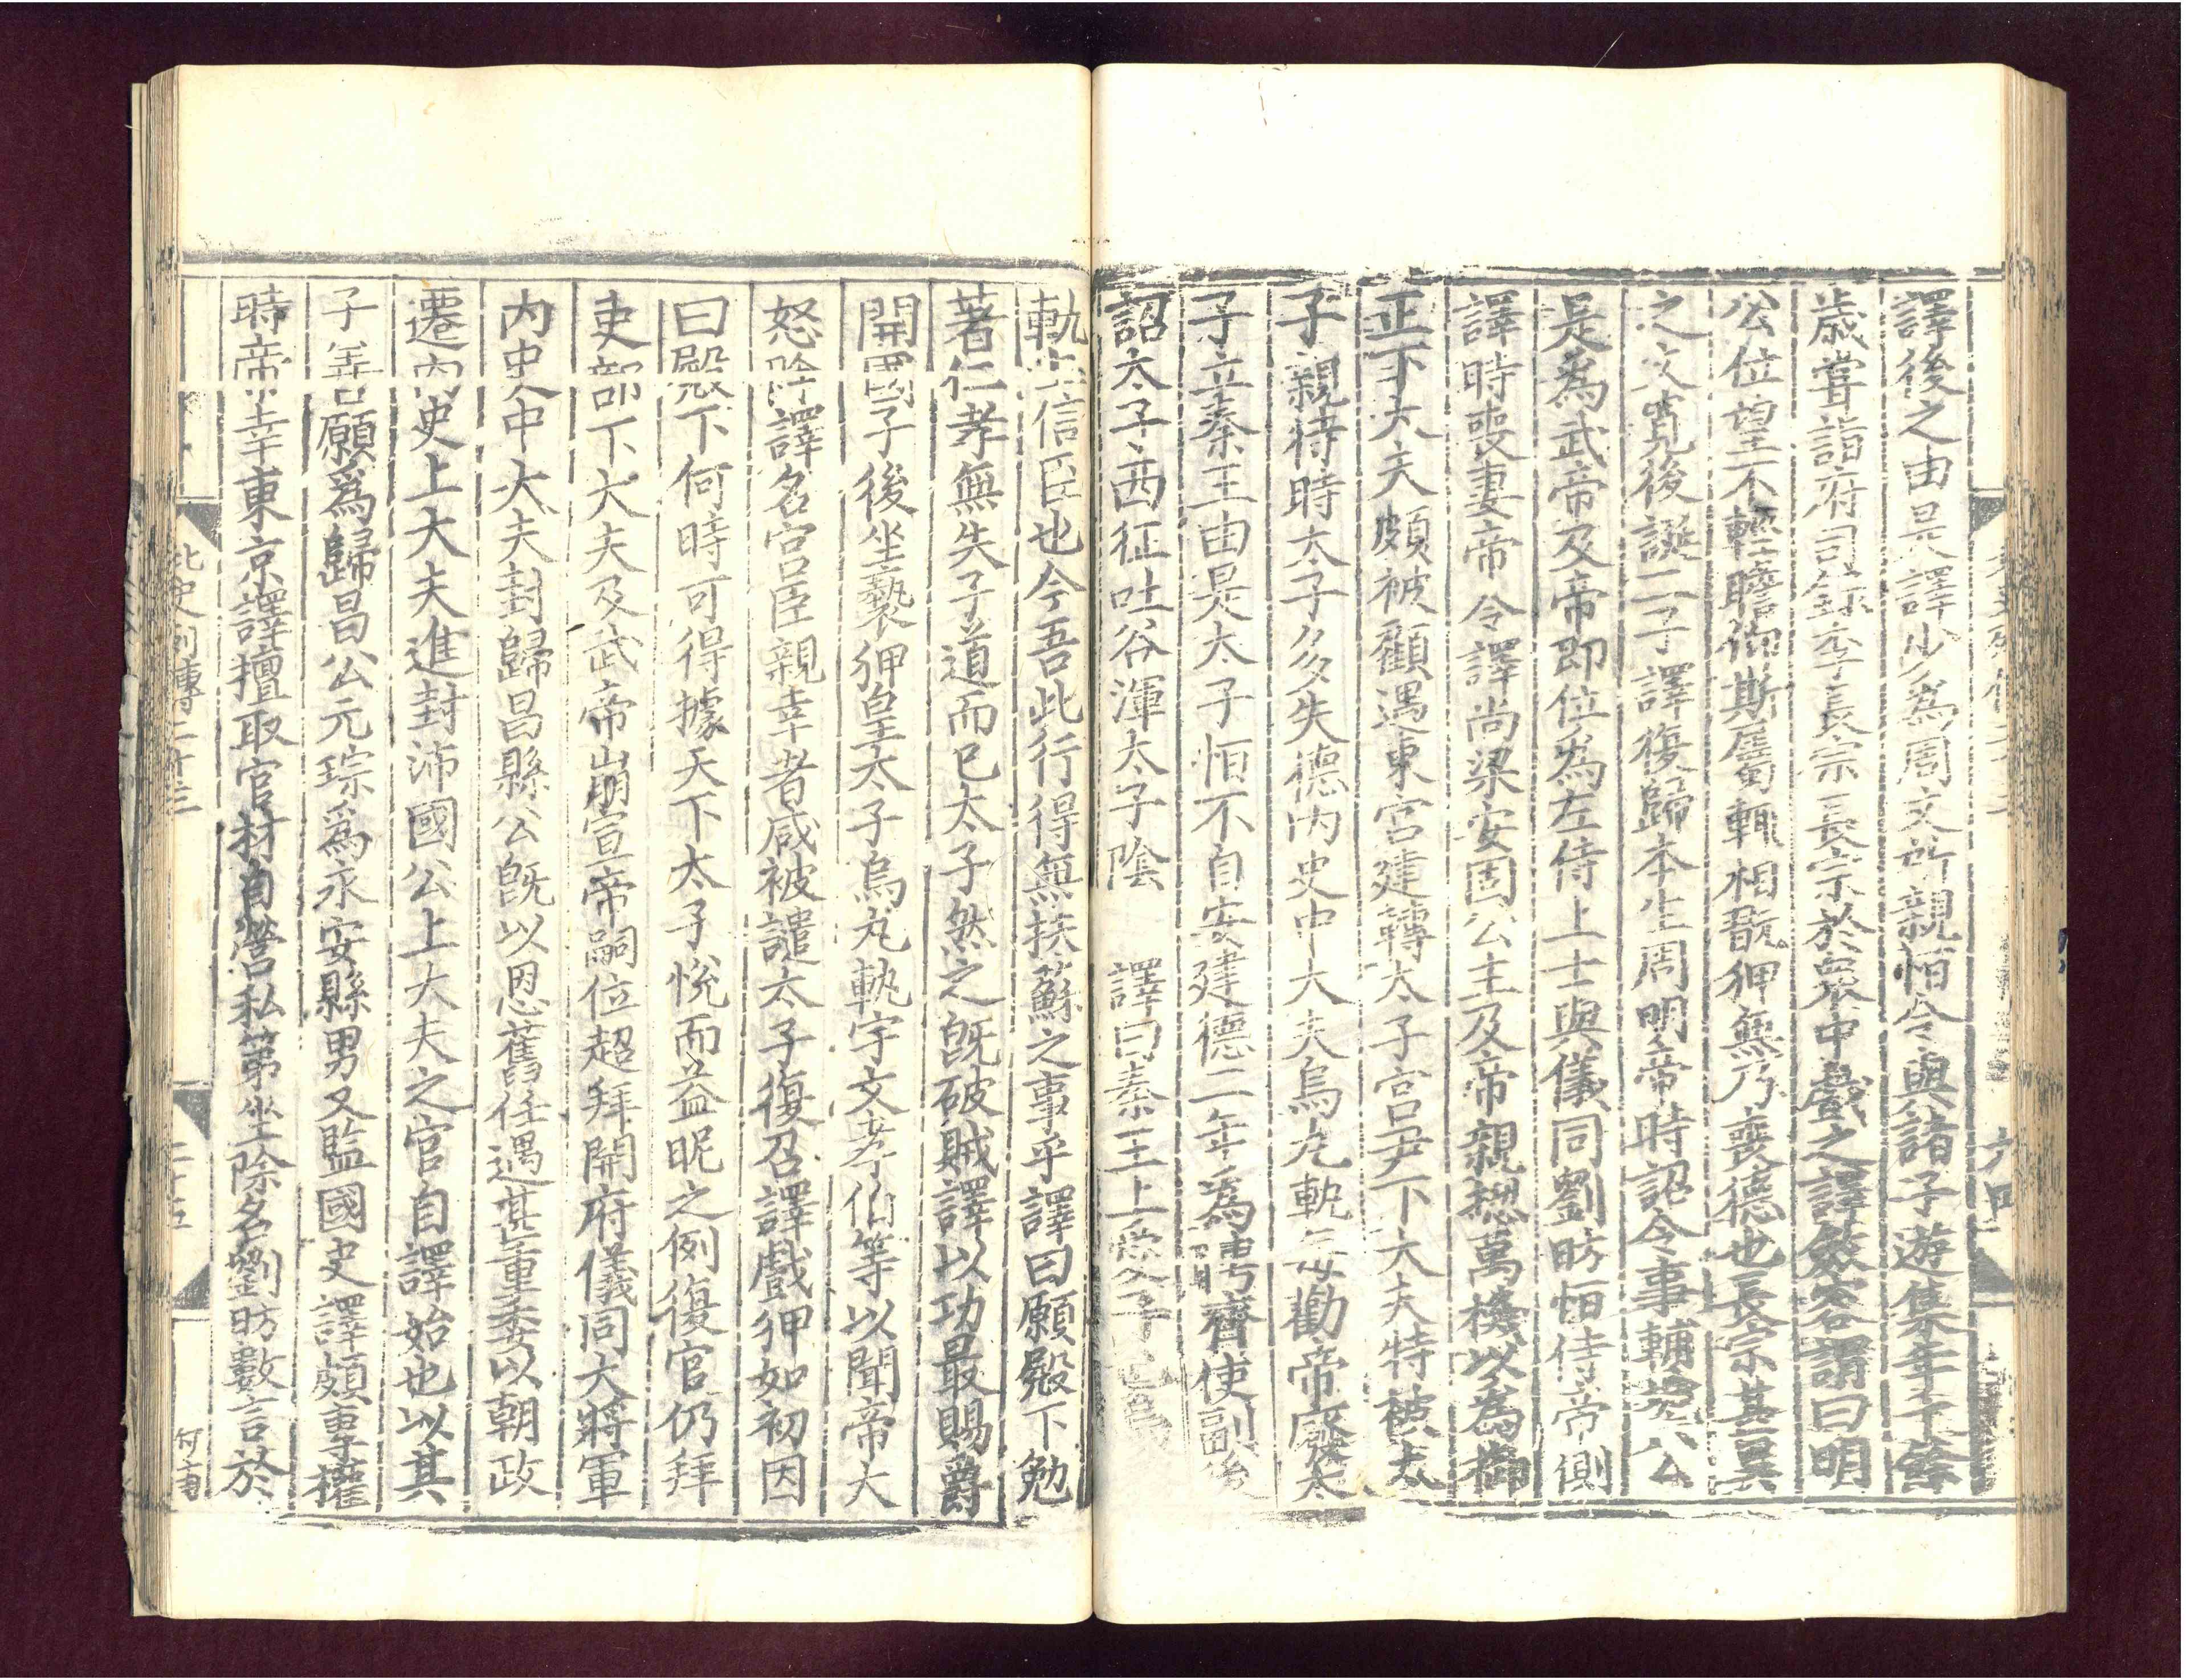 譯後之由是譯少爲周文所親恒令與諸子遊集年十餘
歲嘗詣府司錄李長宗長宗於衆中戲之譯斂容謂曰明
公位望不輕瞻仰斯屬輒相翫狎無乃喪德也長宗甚異
之文寬後誕二子譯復歸本生周明帝時詔令事輔城公
是爲武帝及帝即位爲左侍上士與儀同劉昉恒侍帝側
譯時喪妻帝令譯尚梁安固公主及帝親揔萬機以爲御
正下大夫頗被顧遇東宮建轉太子宮尹下大夫特被太
子親待時太子多失德內史中大夫烏丸軌每勸帝廢太
子立秦王由是太子恒不自安建德二年爲聘齊使副後
詔太子西征吐谷渾太子陰 譯曰秦王上愛子也烏
軌上信臣也今吾此行得無扶蘇之事乎譯曰願殿下勉
著仁孝無失子道而已太子然之旣破賊譯以功最賜爵
開國子後坐褻狎皇太子烏丸軌宇文孝伯等以聞帝大
怒除譯名宮臣親幸者咸被譴太子復召譯戲狎如初因
曰殿下何時可得據天下太子悅而益昵之例復官仍拜
吏部下大夫及武帝崩宣帝嗣位超拜開府儀同大將軍
內史中大夫封歸昌縣公旣以恩舊任遇甚重委以朝政
遷內史上大夫進封沛國公上大夫之官自譯始也以其
子善願爲歸昌公元琮爲永安縣男又監國史譯頗專權
時帝幸東京譯擅取官材自營私第坐除名劉昉數言於
北史列傳二十三
二十五
何甫